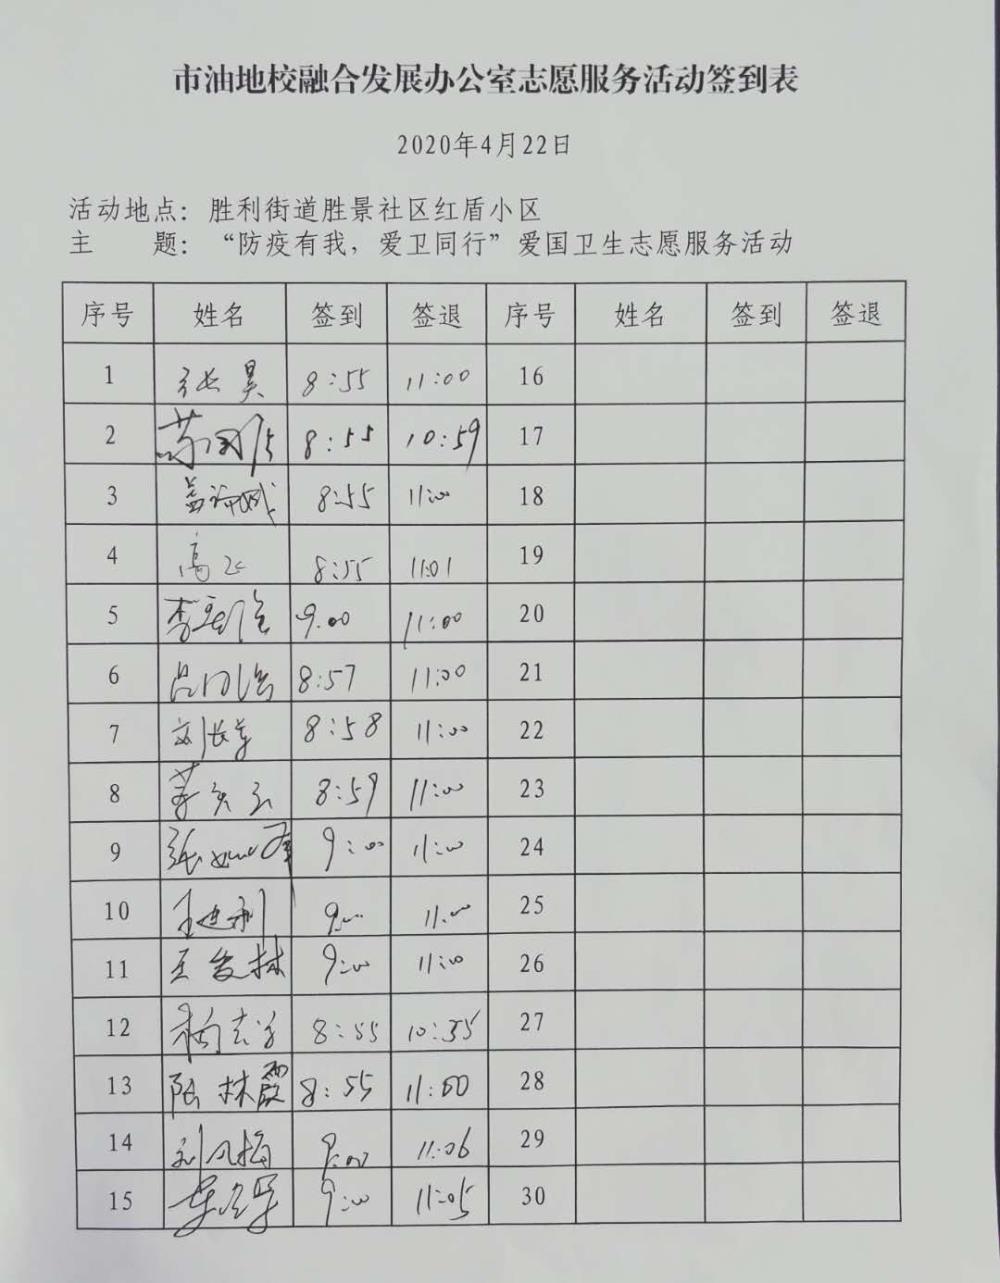 市油地校融合发展办公室志愿服务活动签到表
2020年4月22日
活动地点：胜利街道胜景社区红盾小区
主　　题：“防疫有我，爱卫同行”爱国卫生志愿服务活动
序号 姓名 签到 签退 序号 姓名 签到 签退
1 张昊 8:55 11:00 16
2 8:55 10:59 17
3 8:55 11:00 18
4 高飞 8:55 11:01 19
5 9:00 11:00 20
6 8:57 11:00 21
7 8:58 11:00 22
8 8:59 11:00 23
9 9:00 11:00 24
10 王建利 9:00 11:00 25
11 王发林 9:00 11:00 26
12 8:55 10:35 27
13 陈林霞 8:55 11:00 28
14 9:00 11:06 29
15 9:00 11:05 30